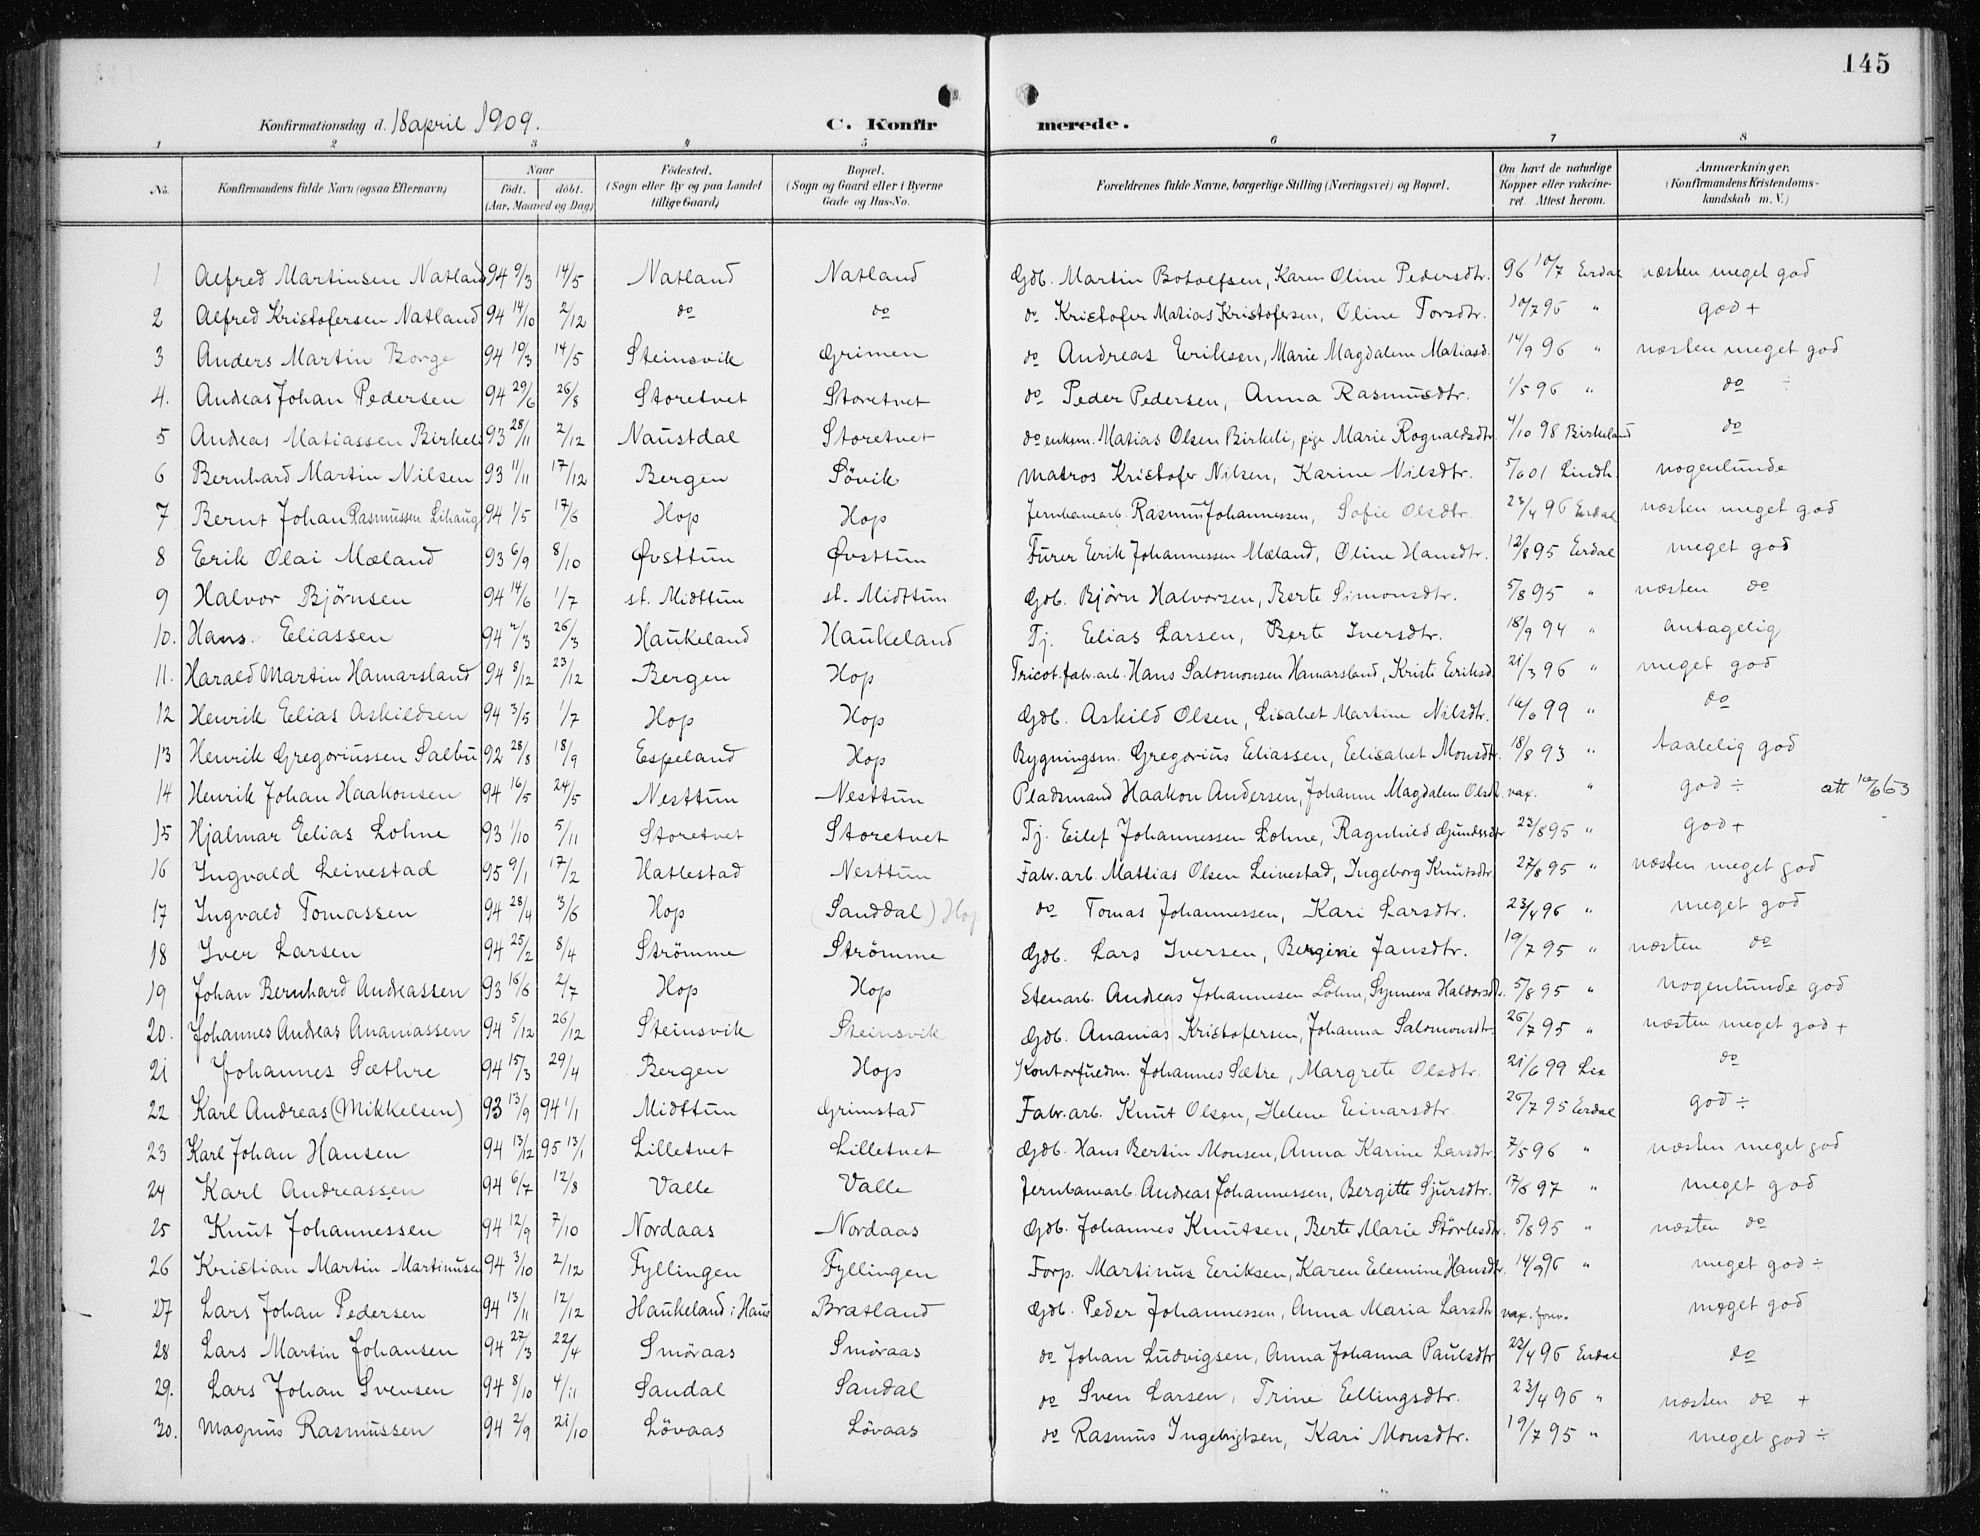 145
Konfirmationsdag d. 18 april 1909. C. Konfirmerede.
1 2 3 4 5 6 7 8
No. Konfirmandens fulde Navn (ogsaa Efternavn) Naar født. døbt. (Aar, Maaned og Dag) Födested. (Sogn eller By og paa Landet tillige Gaard) Bopæl. (Sogn og Gaard eller i Byerne Gade og Hus-No. Forældrenes fulde Navne, borgerlige Stilling (Næringsvei) og Bopæl. Om havt de naturlige Kopper eller vakcineret. Attest herom. Anmærkninger. (Konfirmandens Kristendomskundskab m. V.)
1 Alfred Martinsen Natland 94 9/3 14/5 Natland Natland Gdb. Martin Botolfsen, Karen Oline Pedersdtr. 96 10/7 Erdal næsten meget god
2 Alfred Kristofersen Natland 94 14/10 2/12 do do do Kristofer Matias Kristofersen, Oline Torsdtr. 10/7 95 " god +
3 Anders Martin Borge 94 10/3 14/5 Steinsvik Grimen do Andreas Eriksen, Marie Magdalene Matiasd. 14/9 96 " næsten meget god
4. Andreas Johan Pedersen 94 29/6 26/8 Storetvet Storetvet do Peder Pedersen, Anna Rasmusdtr. 1/5 96 " do ÷
5 Andreas Matiassen Birkeli 93 28/11 2/12 Naustdal Storetvet do enkem. Matias Olsen Birkeli, pige Marie Rognaldsdtr. 4/10 98 Birkeland do
6 Bernhard Martin Nilsen 93 11/11 17/12 Bergen Søvik Matros Kristofer Nilsen, Karine Nilsdtr. 5/6 01 Lindh. nogenlunde
7 Bernt Johan Rasmussen Lihaug 94 1/5 17/6 Hop Hop Jernbanearb. Rasmus Johannessen, Sofie Olsdtr. 23/4 96 Erdal næsten meget god
8 Erik Olai Mæland 93 6/9 8/10 Øvsttun Øvsttun Furer Erik Johannessen Mæland, Oline Hansdtr. 12/8 95 Erdal meget god
9 Halvor Bjørnsen 94 14/6 1/7 st. Midttun st. Midttun Gdb. Bjørn Halvorsen, Berte Simonsdtr. 5/8 95 " næsten do
10. Hans. Eliassen 94 2/3 26/3 Haukeland Haukeland Tj. Elias Larsen, Berte Iversdtr. 18/9 94 " antagelig
11. Harald Martin Hamarsland 94 8/12 23/12 Bergen Hop Tricot.fabr.arb. Hans Salomonsen Hamarsland, Kristi Eriksd. 21/3 96 " meget god
12 Henrik Elias Askildsen 94 3/5 1/7 Hop Hop Gdb. Askild Olsen, Lisabet Martine Nilsdtr. 14/6 99 " do
13 Henrik Gregoriussen Salbu 92 28/8 18/9 Espeland Hop Bygningsm. Gregorius Eliassen, Elisabet Monsdtr. 18/8 93 " taalelig god
14 Henrik Johan Haakonsen 94 16/5 24/5 Nesttun Nesttun Pladsmand Haakon Andersen, Johanne Magdalene Olsd. vax. " god ÷ att 10/6 63
15 Hjalmar Elias Lohne 93 1/10 5/11 Storetvet Storetvet Tj. Eilef Johannessen Lohne, Ragnhild Gundersdtr 23/8 95 " god +
16 Ingvald Leivestad 95 9/1 17/2 Hatlestad Nesttun Fabr.arb. Mattias Olsen Leivestad, Ingeborg Knutsdtr. 27/8 95 " næsten meget god
17 Ingvald Tomassen 94 28/4 3/6 Hop (Sanddal) Hop do Tomas Johannessen, Kari Larsdtr. 23/4 96 " meget god
18 Iver Larsen 94 25/2 8/4 Strömme Strömme Gdb. Lars Iversen, Bergine Jansdtr. 19/7 95 " næsten do
19 Johan Bernhard Andreassen 93 16/6 2/7 Hop Hop Stenarb. Andreas Johannesen Lohne, Synneva Haldorsdtr. 5/8 95 " nogenlunde god
20. Johannes Andreas Ananiassen 94 5/12 26/12 Steinsvik Steinsvik Gdb. Ananias Kristofersen, Johanna Salomonsdtr. 26/7 95 " næsten meget god +
21 Johannes Sæthre 94 15/3 29/4 Bergen Hop Kontorfuldm. Johannes Sætre, Margrete Olsdtr. 21/6 99 do
22 Karl Andreas (Mikkelsen) 93 13/9 94 1/1 Midttun Grimstad Fabr.arb. Knut Olsen, Helene Einarsdtr. 26/7 95 Erdal god ÷
23 Karl Johan Hansen 94 13/12 95 13/1 Lilletvet Lilletvet Gdb. Hans Bertin Monsen, Anna Karine Larsdtr. 7/5 96 " næsten meget god
24 Karl Andreassen 94 6/7 12/8 Valle Valle Jernbanearb. Andreas Johannessen, Bergitte Sjursdtr. 17/6 97 " meget god
25 Knut Johannessen 94 12/9 7/10 Nordaas Nordaas Gdb. Johannes Knutsen, Berte Marie Størlesdtr. 5/8 95 " næsten do
26 Kristian Martin Martinusen 94 3/10 2/12 Fyllingen Fyllingen Forp. Martinus Eriksen, Karen Elemine Hansdtr. 14/9 96 " meget god ÷
27 Lars Johan Pedersen 94 13/11 12/12 Haukeland i Haus Bratland Gdb. Peder Johannessen, Anna Maria Larsdtr vax. forev. meget god
28 Lars Martin Johansen 94 27/3 22/4 Smöraas Smöraas do Johan Ludvigsen, Anna Johanna Paulsdtr 23/4 96 Erdal do
29. Lars Johan Svensen 94 8/10 4/11 Sandal Sandal do Sven Larsen, Trine Ellingsdtr. 23/4 96 " næsten do +
30. Magnus Rasmussen 94 2/9 21/10 Lövaas Lövaas do Rasmus Ingebrigtsen, Kari Monsdtr. 19/7 95 " meget god ÷